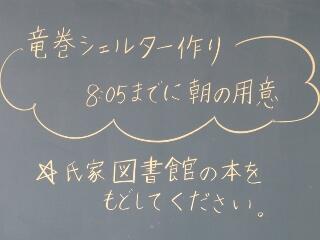 竜巻シェルター作り
8:05までに朝の用意
☆氏家図書館の本を
もどしてください。